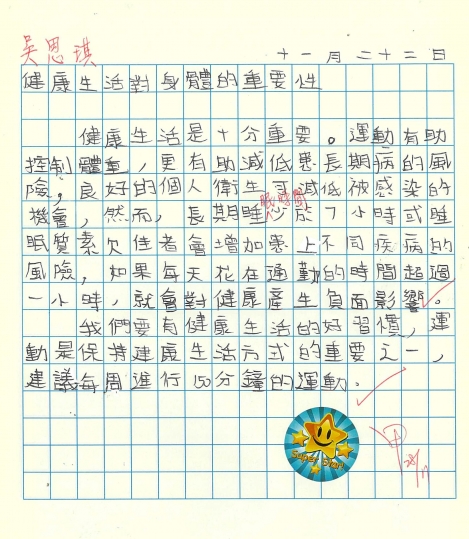 吳恩琪
十一月二十二日
健康生活對身體的重要性
健康生活是十分重要。運動有助
控制體重，更有助減低患長期病的風
險，良好的個人衛生可減低被感染的
機會，然而，長期睡眠時間少於7小時或睡
眠質素欠佳者會增加患上不同疾病的
風險，如果每天花在通勤的時間超過
一小時，就會對健康產生負面影響。
我們要有健康生活的好習慣，運
動是保持建康生活方式的重要之一，
建議每周進行150分鐘的運動。
Super Star!